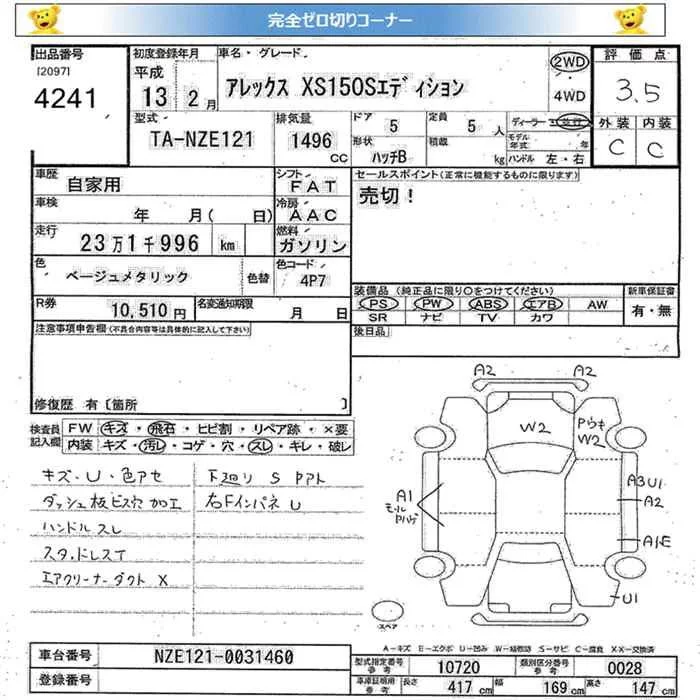 完全ゼロ切りコーナー
出品番号 初度登録年月 車名・グレード 評価点
[2097] 平成 アレックス XS150Sエディション 2WD 3.5
4241 13 2月 4WD
型式 排気量 ドア 5 定員 5 人 ディーラー 並行 外装 内装
TA-NZE121 1496 cc 形状 ハッチB 積載 kg モデル年式 年 ハンドル 左・右 C C
車歴 自家用 シフト FAT セールスポイント(正常に機能するものに限ります)
車検 年 月( 日) 冷房 AAC 売切!
走行 23万1千996 km 燃料 ガソリン
色 ベージュメタリック 色替 色コード 4P7
装備品(純正品に限り○をつけてください) 新車保証書
R券 10,510円 名変通知期限 月 日 PS PW ABS エアB AW 有・無
SR ナビ TV カワ
注意事項申告欄(不具合内容等は具体的に記入して下さい) 後日品
修復歴 有〔箇所 〕
検査員記入欄 FW キズ・飛石・ヒビ割・リペア跡・×要
内装 キズ・汚レ・コゲ・穴・スレ・キレ・破レ
キズ・U・色アセ 下廻り S
ダッシュ板ビス穴 加工 右Fインパネ U
ハンドル スレ
エアクリーナーダクト X
A2 A2
W2 W2
A1 A3 U1
A2
A1E
U1
スペア
A-キズ E-エクボ U-凹み W-補修跡 S-サビ C-腐食 X・XX-交換済
車台番号 NZE121-0031460
型式指定番号 参考 10720 類別区分番号 参考 0028
登録番号 車庫証明用 参考 長さ 417 cm 幅 169 cm 高さ 147 cm